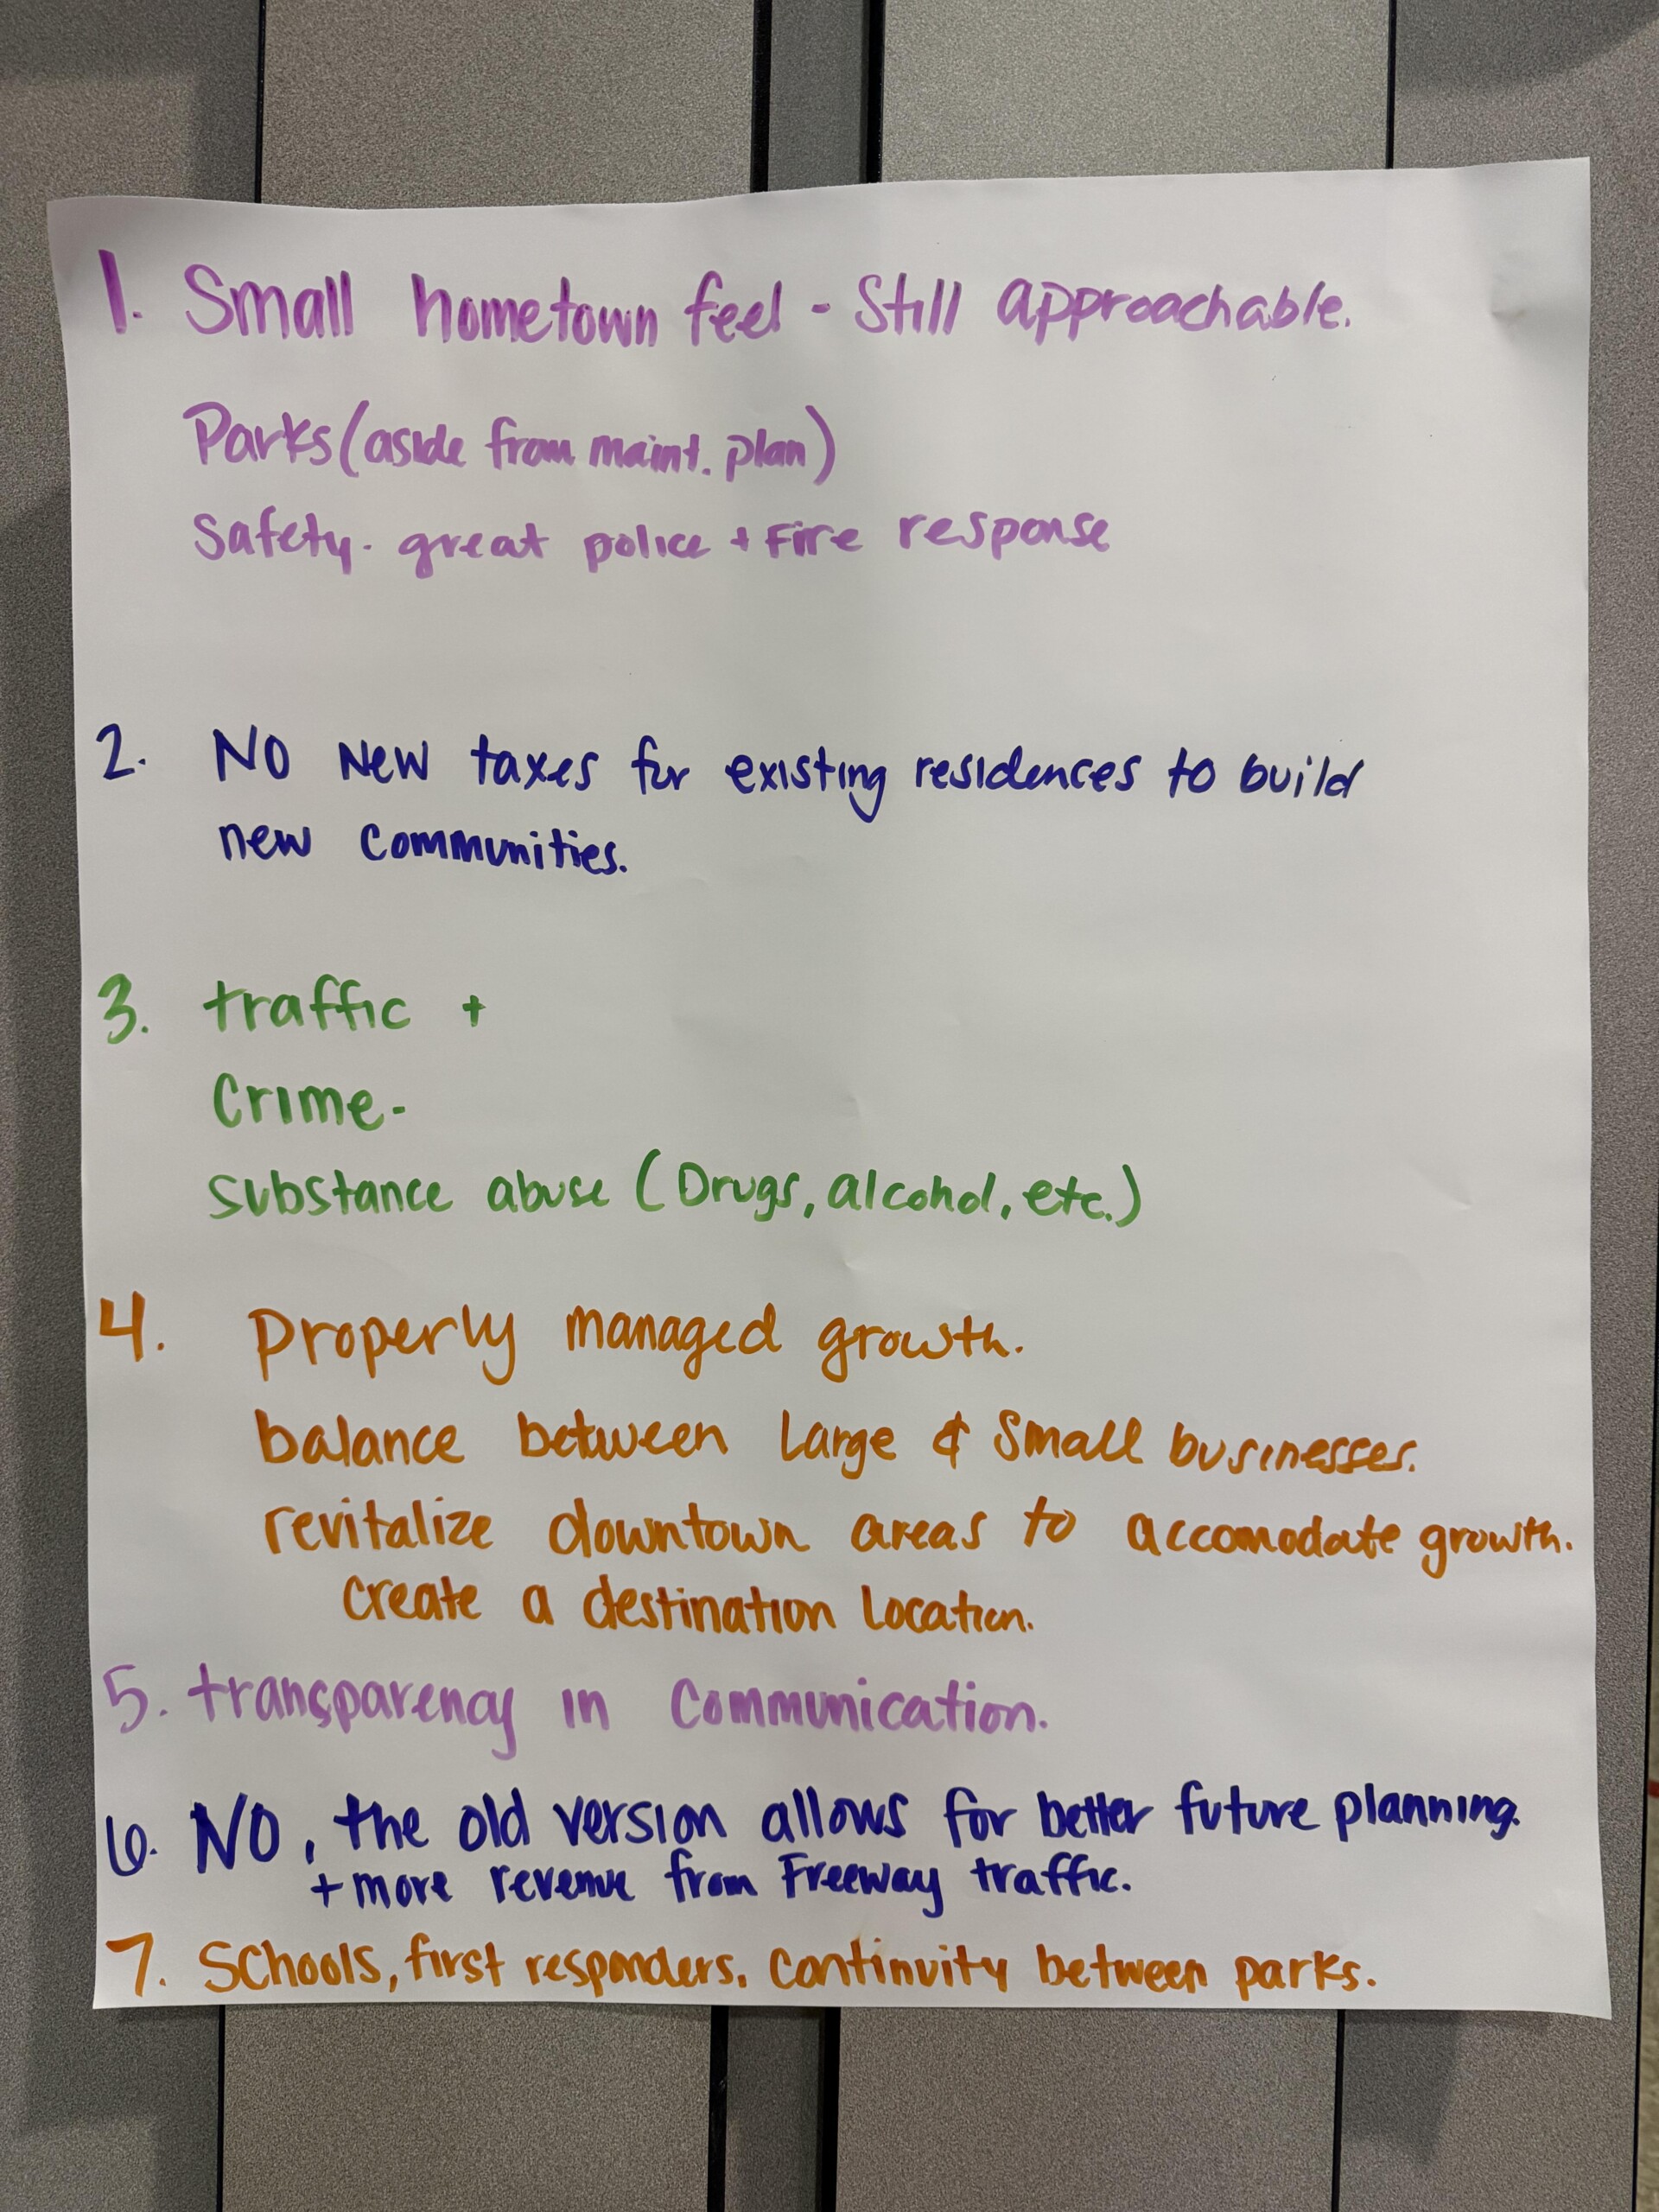 1. Small hometown feel - Still approachable.
Parks (aside from maint. plan)
Safety. great police + Fire response
2. NO New taxes for existing residences to build
new Communities.
3. traffic +
Crime-
substance abuse (Drugs, alcohol, etc.)
4. Properly managed growth.
balance between Large & Small businesses.
revitalize downtown areas to accomodate growth.
Create a destination Location.
5. transparency in Communication.
6. NO, the old version allows for better future planning.
+ more revenue from Freeway traffic.
7. Schools, first responders, Continuity between parks.